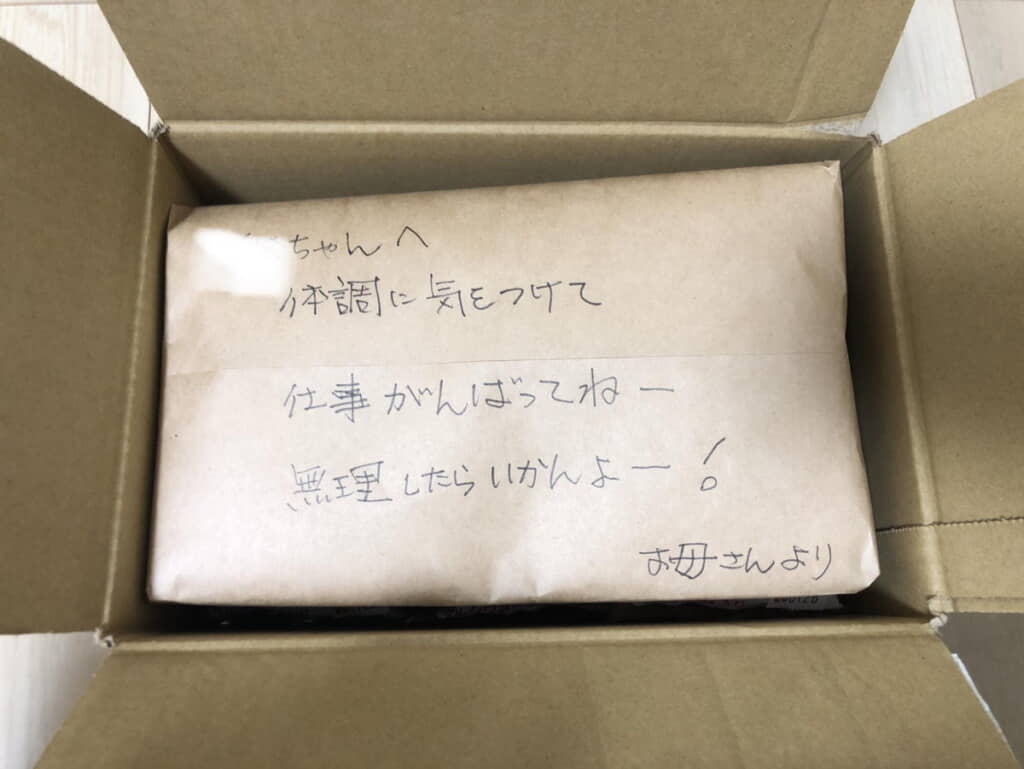 ちゃんへ
体調に気をつけて
仕事がんばってねー
無理したらいかんよー!
お母さんより